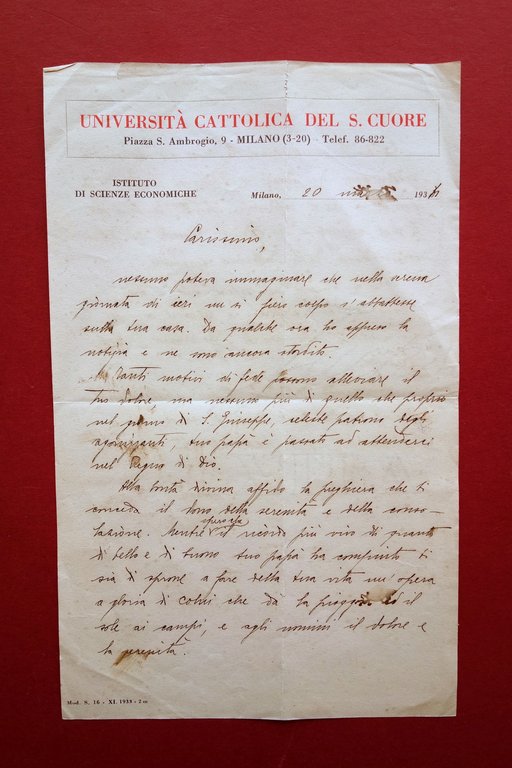 UNIVERSITÀ CATTOLICA DEL S. CUORE
Piazza S. Ambrogio, 9 - MILANO (3-20) - Telef. 86-822
ISTITUTO
DI SCIENZE ECONOMICHE
Milano, 20 193
Carissimo,
nessuno poteva immaginare che nella serena
giornata di ieri un sì fiero colpo s'abbattesse
sulla tua casa. Da qualche ora ho appreso la
notizia e ne sono ancora stordito.
Tanti motivi di fede possono alleviare il
tuo dolore, ma nessuno più di quello che proprio
nel giorno di S. Giuseppe, celeste patrono degli
agonizzanti, tuo papà è passato ad attenderci
nel Regno di Dio.
Alla bontà divina affido la preghiera che ti
conceda il dono della serenità e della conso-
lazione. Mentre il ricordo più vivo di quanto
di bello e di buono tuo papà ha compiuto ti
sia di sprone a fare della tua vita un'opera
a gloria di Colui che dà la pioggia ed il
sole ai campi, e agli uomini il dolore e
la serenità.
Mod. S. 16 - XI. 1933 - 2 m